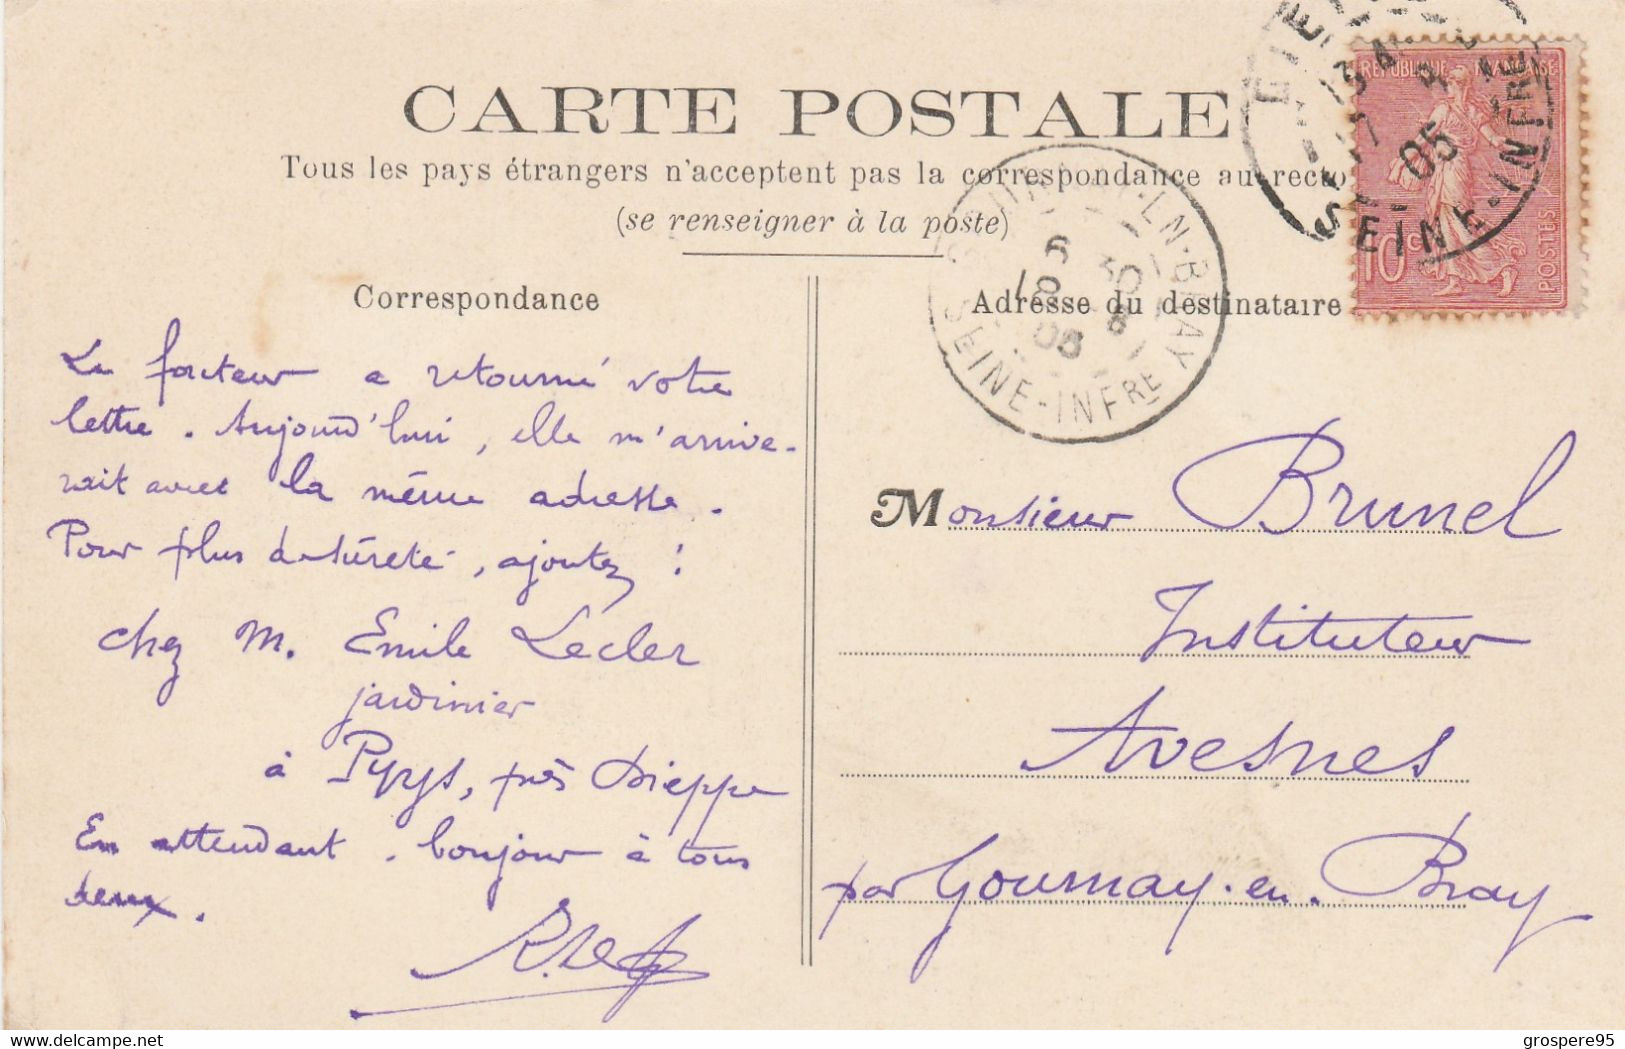 CARTE POSTALE
Tous les pays étrangers n'acceptent pas la correspondance au recto
(se renseigner à la poste)
RÉPUBLIQUE FRANÇAISE
10c
POSTES
05
SEINE-INFRE
LN-BRAY
SEINE-INFRE
Correspondance
Le facteur a retourné votre
lettre. Aujourd'hui, elle m'arrive-
rait avec la même adresse.
Pour plus de sûreté, ajoutez :
chez M. Emile Lecler
jardinier
à Pys, près Dieppe
En attendant, bonjour à tous
deux.
Adresse du destinataire
Monsieur Brunel
Instituteur
Avesnes
par Gournay-en-Bray
www.delcampe.net
grospere95